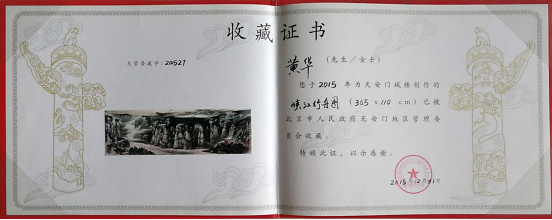 收藏证书
天管委藏字：201527
黄华 （先生／女士）
您于2015年为天安门城楼创作的
峡江行舟图（365 x 110 cm）已被
北京市人民政府天安门地区管理委
员会收藏。
特颁此证，以示感谢。
2015年12月31日